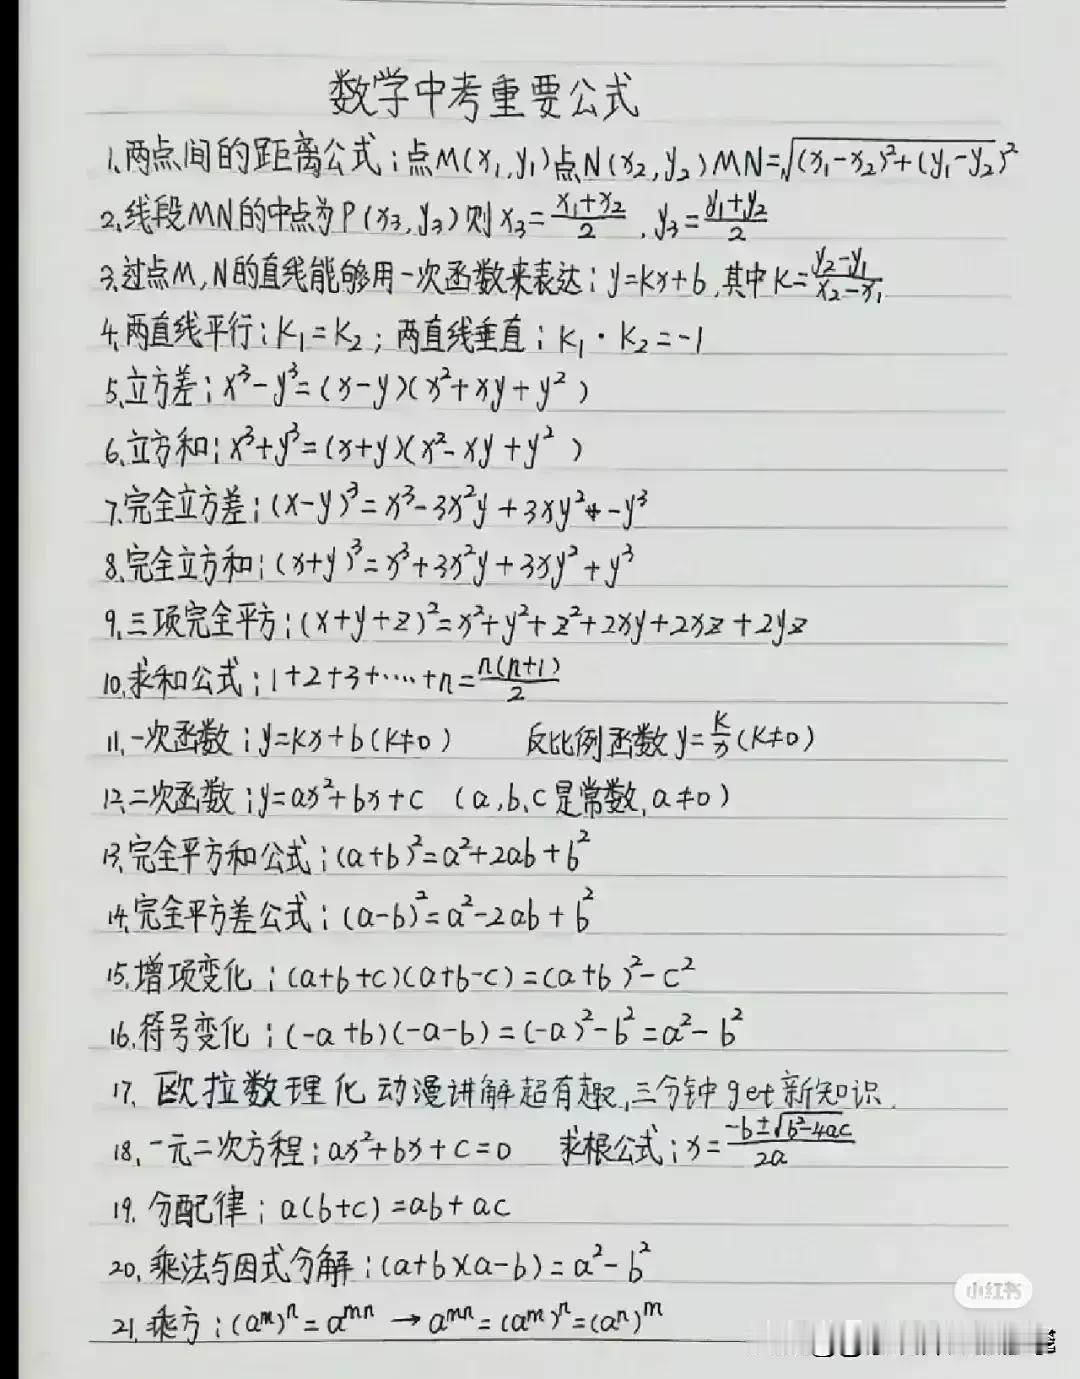 数学中考重要公式
1.两点间的距离公式：点M(x₁,y₁)点N(x₂,y₂)MN=√(x₁-x₂)²+(y₁-y₂)²
2.线段MN的中点为P(x₃,y₃)则x₃=(x₁+x₂)/2,y₃=(y₁+y₂)/2
3.过点M,N的直线能够用一次函数来表达：y=kx+b,其中k=(y₂-y₁)/(x₂-x₁)
4.两直线平行：k₁=k₂；两直线垂直：k₁·k₂=-1
5.立方差：x³-y³=(x-y)(x²+xy+y²)
6.立方和：x³+y³=(x+y)(x²-xy+y²)
7.完全立方差：(x-y)³=x³-3x²y+3xy²-y³
8.完全立方和：(x+y)³=x³+3x²y+3xy²+y³
9.三项完全平方：(x+y+z)²=x²+y²+z²+2xy+2xz+2yz
10.求和公式：1+2+3+……+n=n(n+1)/2
11.一次函数：y=kx+b(k≠0) 反比例函数y=k/x(k≠0)
12.二次函数：y=ax²+bx+c (a,b,c是常数,a≠0)
13.完全平方和公式：(a+b)²=a²+2ab+b²
14.完全平方差公式：(a-b)²=a²-2ab+b²
15.增项变化：(a+b+c)(a+b-c)=(a+b)²-c²
16.符号变化：(-a+b)(-a-b)=(-a)²-b²=a²-b²
17.欧拉数理化动漫讲解超有趣,三分钟get新知识.
18.一元二次方程：ax²+bx+c=0 求根公式：x=(-b±√b²-4ac)/2a
19.分配律：a(b+c)=ab+ac
20.乘法与因式分解：(a+b)(a-b)=a²-b²
21.乘方：(aᵐ)ⁿ=aᵐⁿ→aᵐⁿ=(aᵐ)ⁿ=(aⁿ)ᵐ
小红书